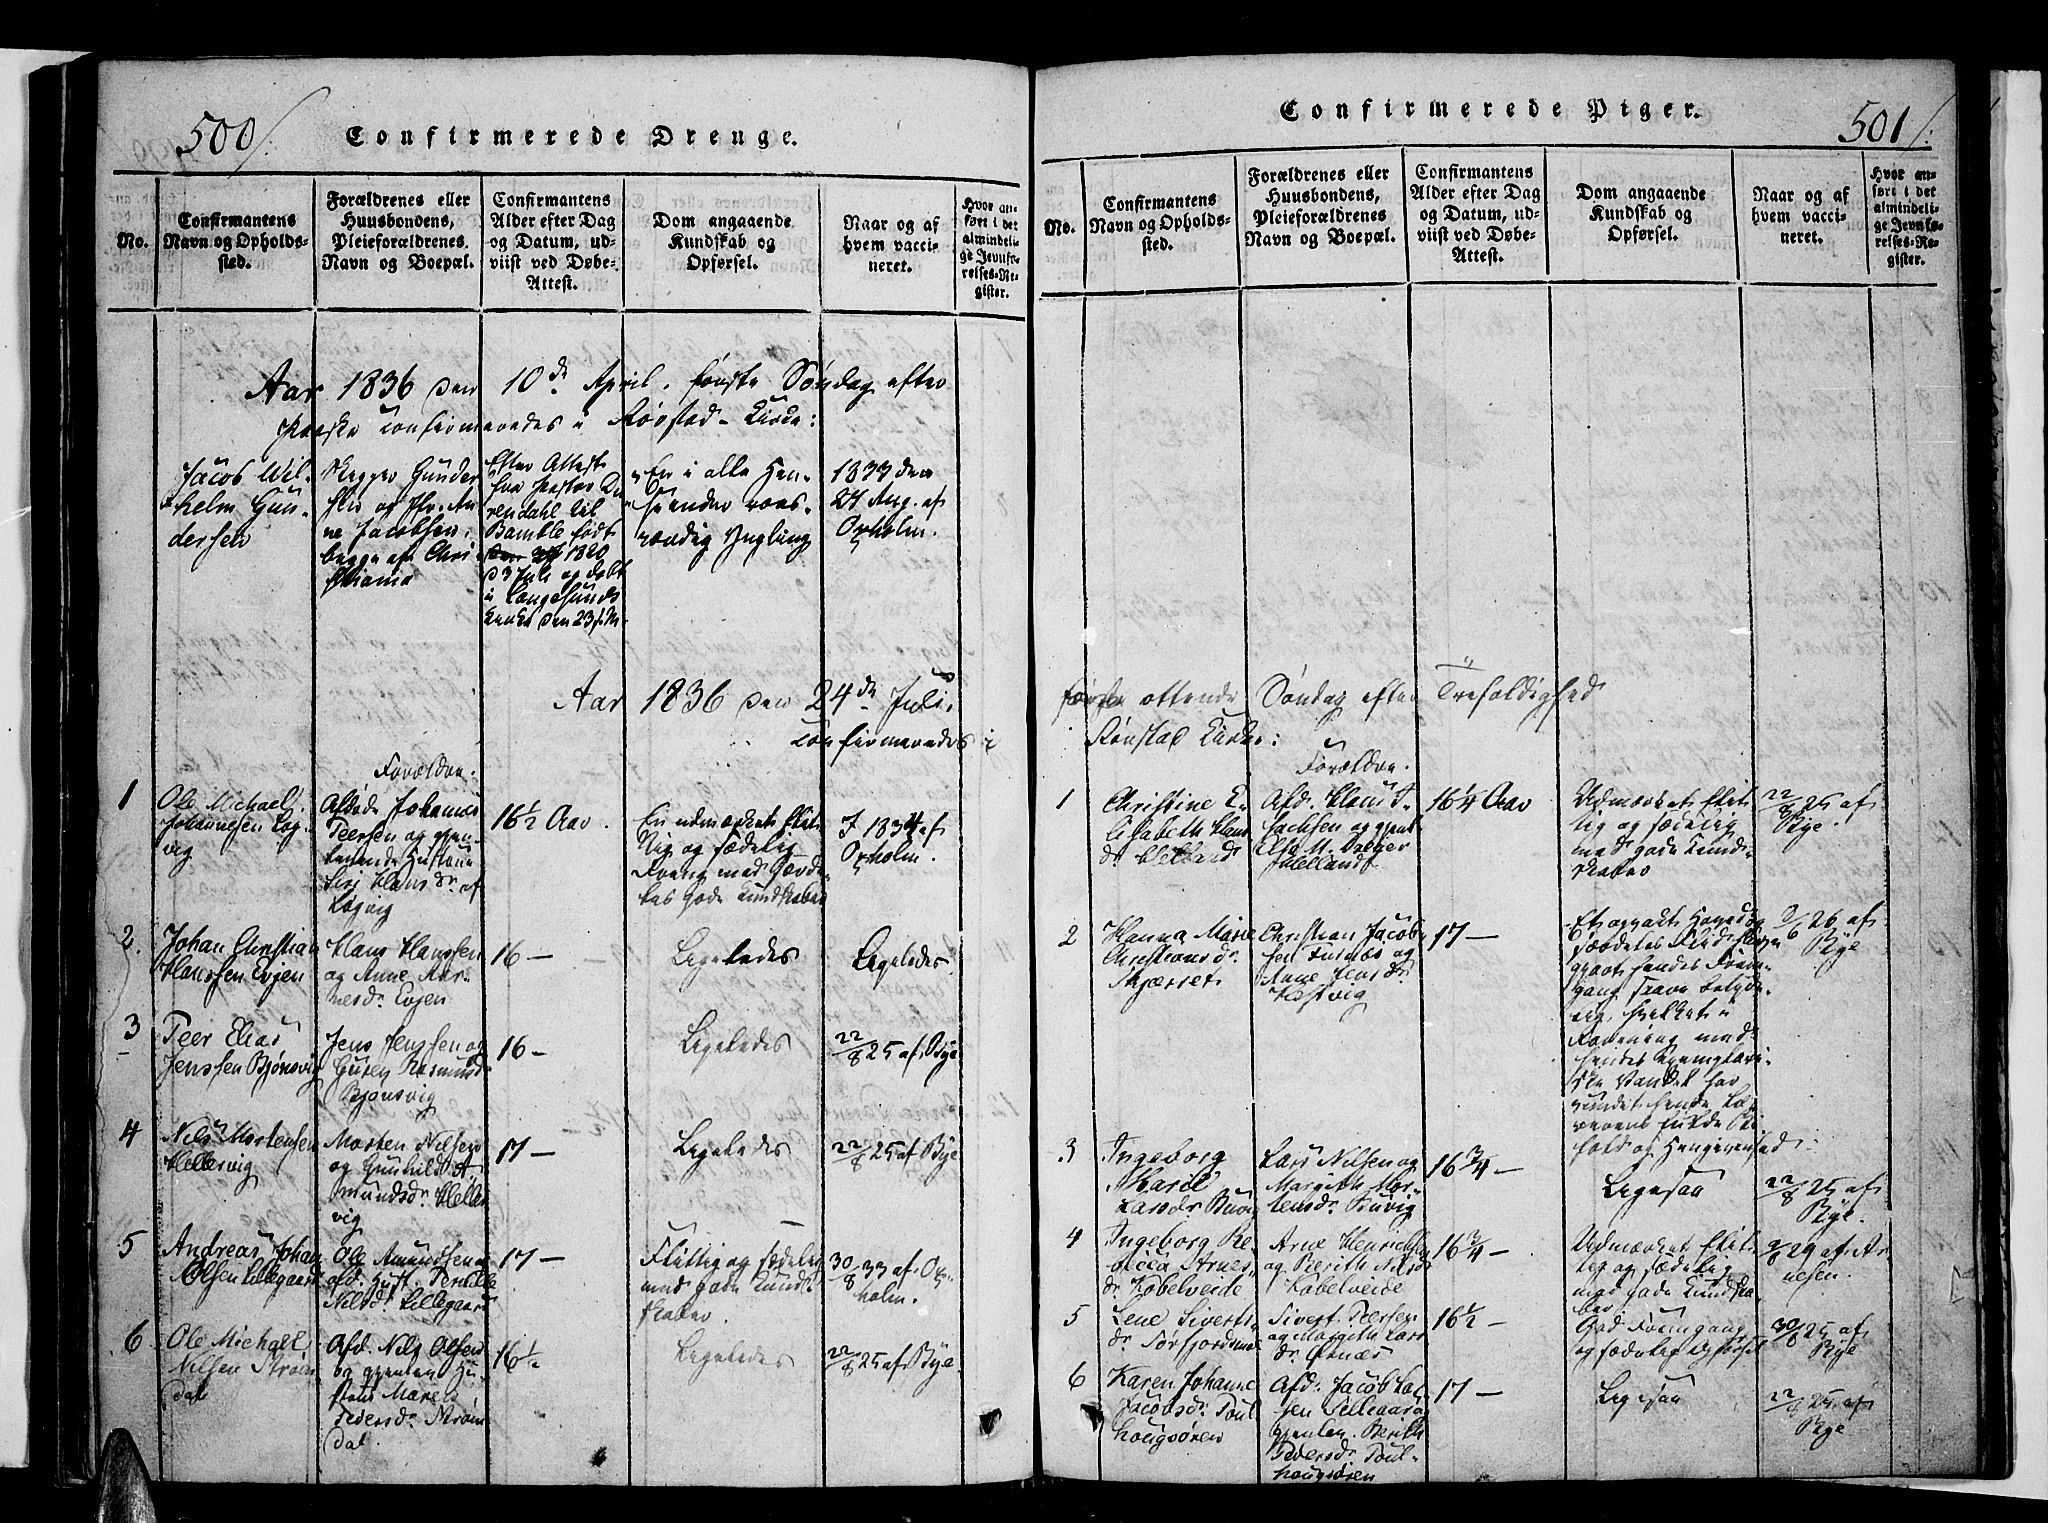 500/.
Confirmerede Drenge.
No.
Confirmantens
Navn og Opholds-
sted.
Forældrenes eller
Huusbondens,
Pleieforældrenes
Navn og Boepæl.
Confirmantens
Alder efter Dag
og Datum, ud-
viist ved Døbe-
Attest.
Dom angaaende
Kundskab og
Opførsel.
Naar og af
hvem vacci-
neret.
Hvor an-
ført i det
almindeli-
ge Jevnfø-
relses-Re-
gister.
Aar 1836 den 10de April, første Søndag efter
Paaske confirmeredes i Rørstad-Kirke:
Jacob Wil-
helm Gun-
dersen
Gunder
og
ne Jacobsen,
begge af Chri-
stiania
Efter Attest
fra Pastor
til
Bamble født
1820
d 3 Juli og døbt
i Langesunds
Kirke den 23 s. M.
Er i alle Hen-
seender
Yngling
1833 den
27 Aug. af
Oxholm.
Aar 1836 den 24de Juli,
confirmeredes i
Forældre.
1
Ole Michael
Johannesen Løg-
vig
Afdøde Johannes
Peersen og gjen-
levende Hustrue
Siri Hansdr. af
Løgvig
16½ Aar.
En udmærket flit-
tig og sædelig
Dreng med
gode Kundskaber
I 1834 af
Oxholm.
2.
Johan Christian
Hanssen Evjen
Hans Hanssen
og Anne Aar-
nesdr. Evjen
16 —
Ligeledes
Ligeledes.
3
Peer Elias
Jenssen Bjørnsvig
Jens Jenssen og
Guren Rasmusd
Bjørnsvig
16 —
Ligeledes
22/8 25 af Bye
4
Nils Mortensen
Hellervig
Morten Nilsen
og Gunhild A-
mundsdr. Heller
vig
17 —
Ligeledes
22/8 25 af Bye
5
Andreas Johan
Olsen Lillegaard
Ole Amundsen og
afd. Hust. Pernille
Nilsdr. Lillegaard
17 —
Flittig og sædelig
med gode Kund-
skaber.
30/8 33 af Ox-
holm.
6
Ole Michael
Nilsen Strøm
dal
Afd. Nils Olsen
og gjenlev. Hu-
strue Maren
Pedersdr. Strøm
dal.
16½
Ligeledes
22/8 25 af Bye.
Confirmerede Piger.
501/.
No.
Confirmantens
Navn og Opholds-
sted.
Forældrenes eller
Huusbondens,
Pleieforældrenes
Navn og Boepæl.
Confirmantens
Alder efter Dag
og Datum, ud-
viist ved Døbe-
Attest.
Dom angaaende
Kundskab og
Opførsel.
Naar og af
hvem vacci-
neret.
Hvor an-
ført i det
almindeli-
ge Jevnfø-
relses-Re-
gister.
ottende Søndag efter Trefoldighed
Rørstad Kirke:
Forældre.
1
Christine E-
lisabeth Hans
dr. Helland
Afd. Hans I-
sachsen og gjenl.
Else M.
Helland
16¼ Aar
Udmærket flit-
tig og sædelig
med gode Kund-
skaber
22/8 25 af
Bye.
2
Hanna Marie
Christiansdr.
Christian Jacob-
sen Furnæs og
Anne Jensdr.
17 —
hendes Frem-
gang
hvilket i
Forening med
hendes
Vandel har
vundet hende Læ-
rerens fulde Bi-
fald og Hengivenhed.
2/6 26 af
Bye
3
Ingeborg
Marie
Larsdr. Buvig
Lars Nilsen og
Margith Mor-
tensdr. Buvig
16¾ —
Ligesaa
22/8 25 af
Bye.
4
Ingeborg Re-
becca Arnes-
dr. Kobelveide
Arne Henrichsen
og Berith Nilsd
Kobelveide
16¾ —
Udmærket flit-
tig og sædelig
med gode Kundska-
ber
2/8 29 af Ar
nesen.
5
Lene Siverts-
dr. Tørfjordsnæs
Sivert Peersen
og Margith Lars
dr. Ørnæs
16½ —
God Fremgang
og sædelig Opførsel
30/8 25 af
Bye
6
Karen Johanne
Jacobsdr. Poul
haugsøren
Afd. Jacob Lar-
sen Lillegaard og
gjenlev. Berith
Pedersdr. Poul-
haugsøren
17 —
Ligesaa
22/8 25 af
Bye